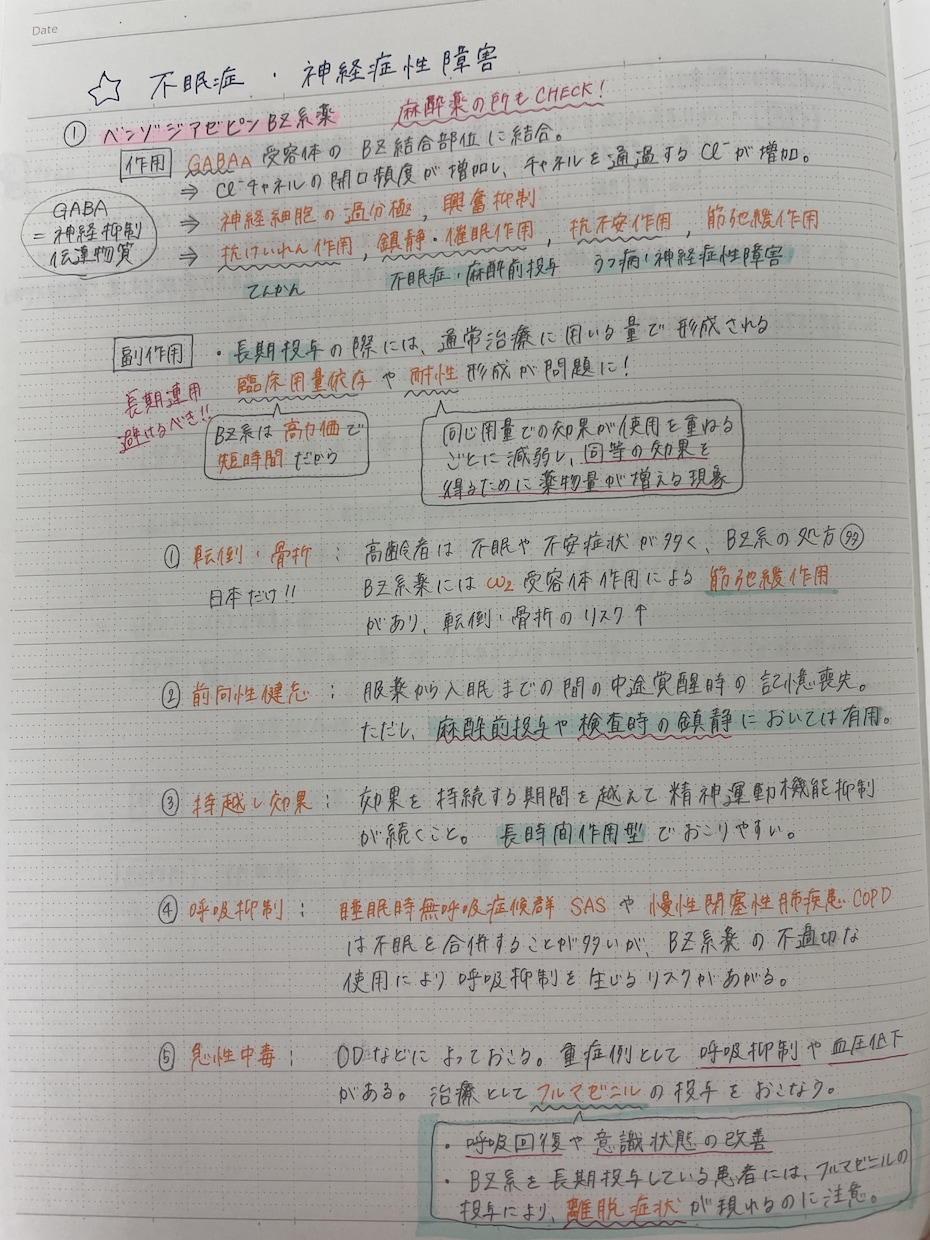 Date
☆ 不眠症・神経症性障害
① ベンゾジアゼピンBZ系薬 麻酔薬の所もCHECK!
作用 GABAA 受容体の BZ結合部位に結合。
⇒ Cl⁻チャネルの開口頻度が増加し、チャネルを通過するCl⁻が増加。
GABA
=神経抑制
伝達物質
⇒ 神経細胞の過分極, 興奮抑制
⇒ 抗けいれん作用, 鎮静・催眠作用, 抗不安作用, 筋弛緩作用
てんかん 不眠症・麻酔前投与 うつ病・神経症性障害
副作用 ・長期投与の際には、通常治療に用いる量で形成される
臨床用量依存や耐性形成が問題に!
長期連用
避けるべき!!
BZ系は高力価で
短時間だから
同じ用量での効果が使用を重ねる
ごとに減弱し、同等の効果を
得るために薬物量が増える現象
① 転倒・骨折 : 高齢者は不眠や不安症状が多く、BZ系の処方多
日本だけ!! BZ系薬にはω2受容体作用による筋弛緩作用
があり、転倒・骨折のリスク↑
② 前向性健忘 : 服薬から入眠までの間の中途覚醒時の記憶喪失。
ただし、麻酔前投与や検査時の鎮静においては有用。
③ 持越し効果 : 効果を持続する期間を越えて精神運動機能抑制
が続くこと。 長時間作用型でおこりやすい。
④ 呼吸抑制 : 睡眠時無呼吸症候群 SASや慢性閉塞性肺疾患COPD
は不眠を合併することが多いが、BZ系薬の不適切な
使用により呼吸抑制を生じるリスクがあがる。
⑤ 急性中毒 : ODなどによっておこる。重症例として呼吸抑制や血圧低下
がある。治療としてフルマゼニルの投与をおこなう。
・呼吸回復や意識状態の改善
・BZ系を長期投与している患者には、フルマゼニルの
投与により、離脱症状が現れるのに注意。